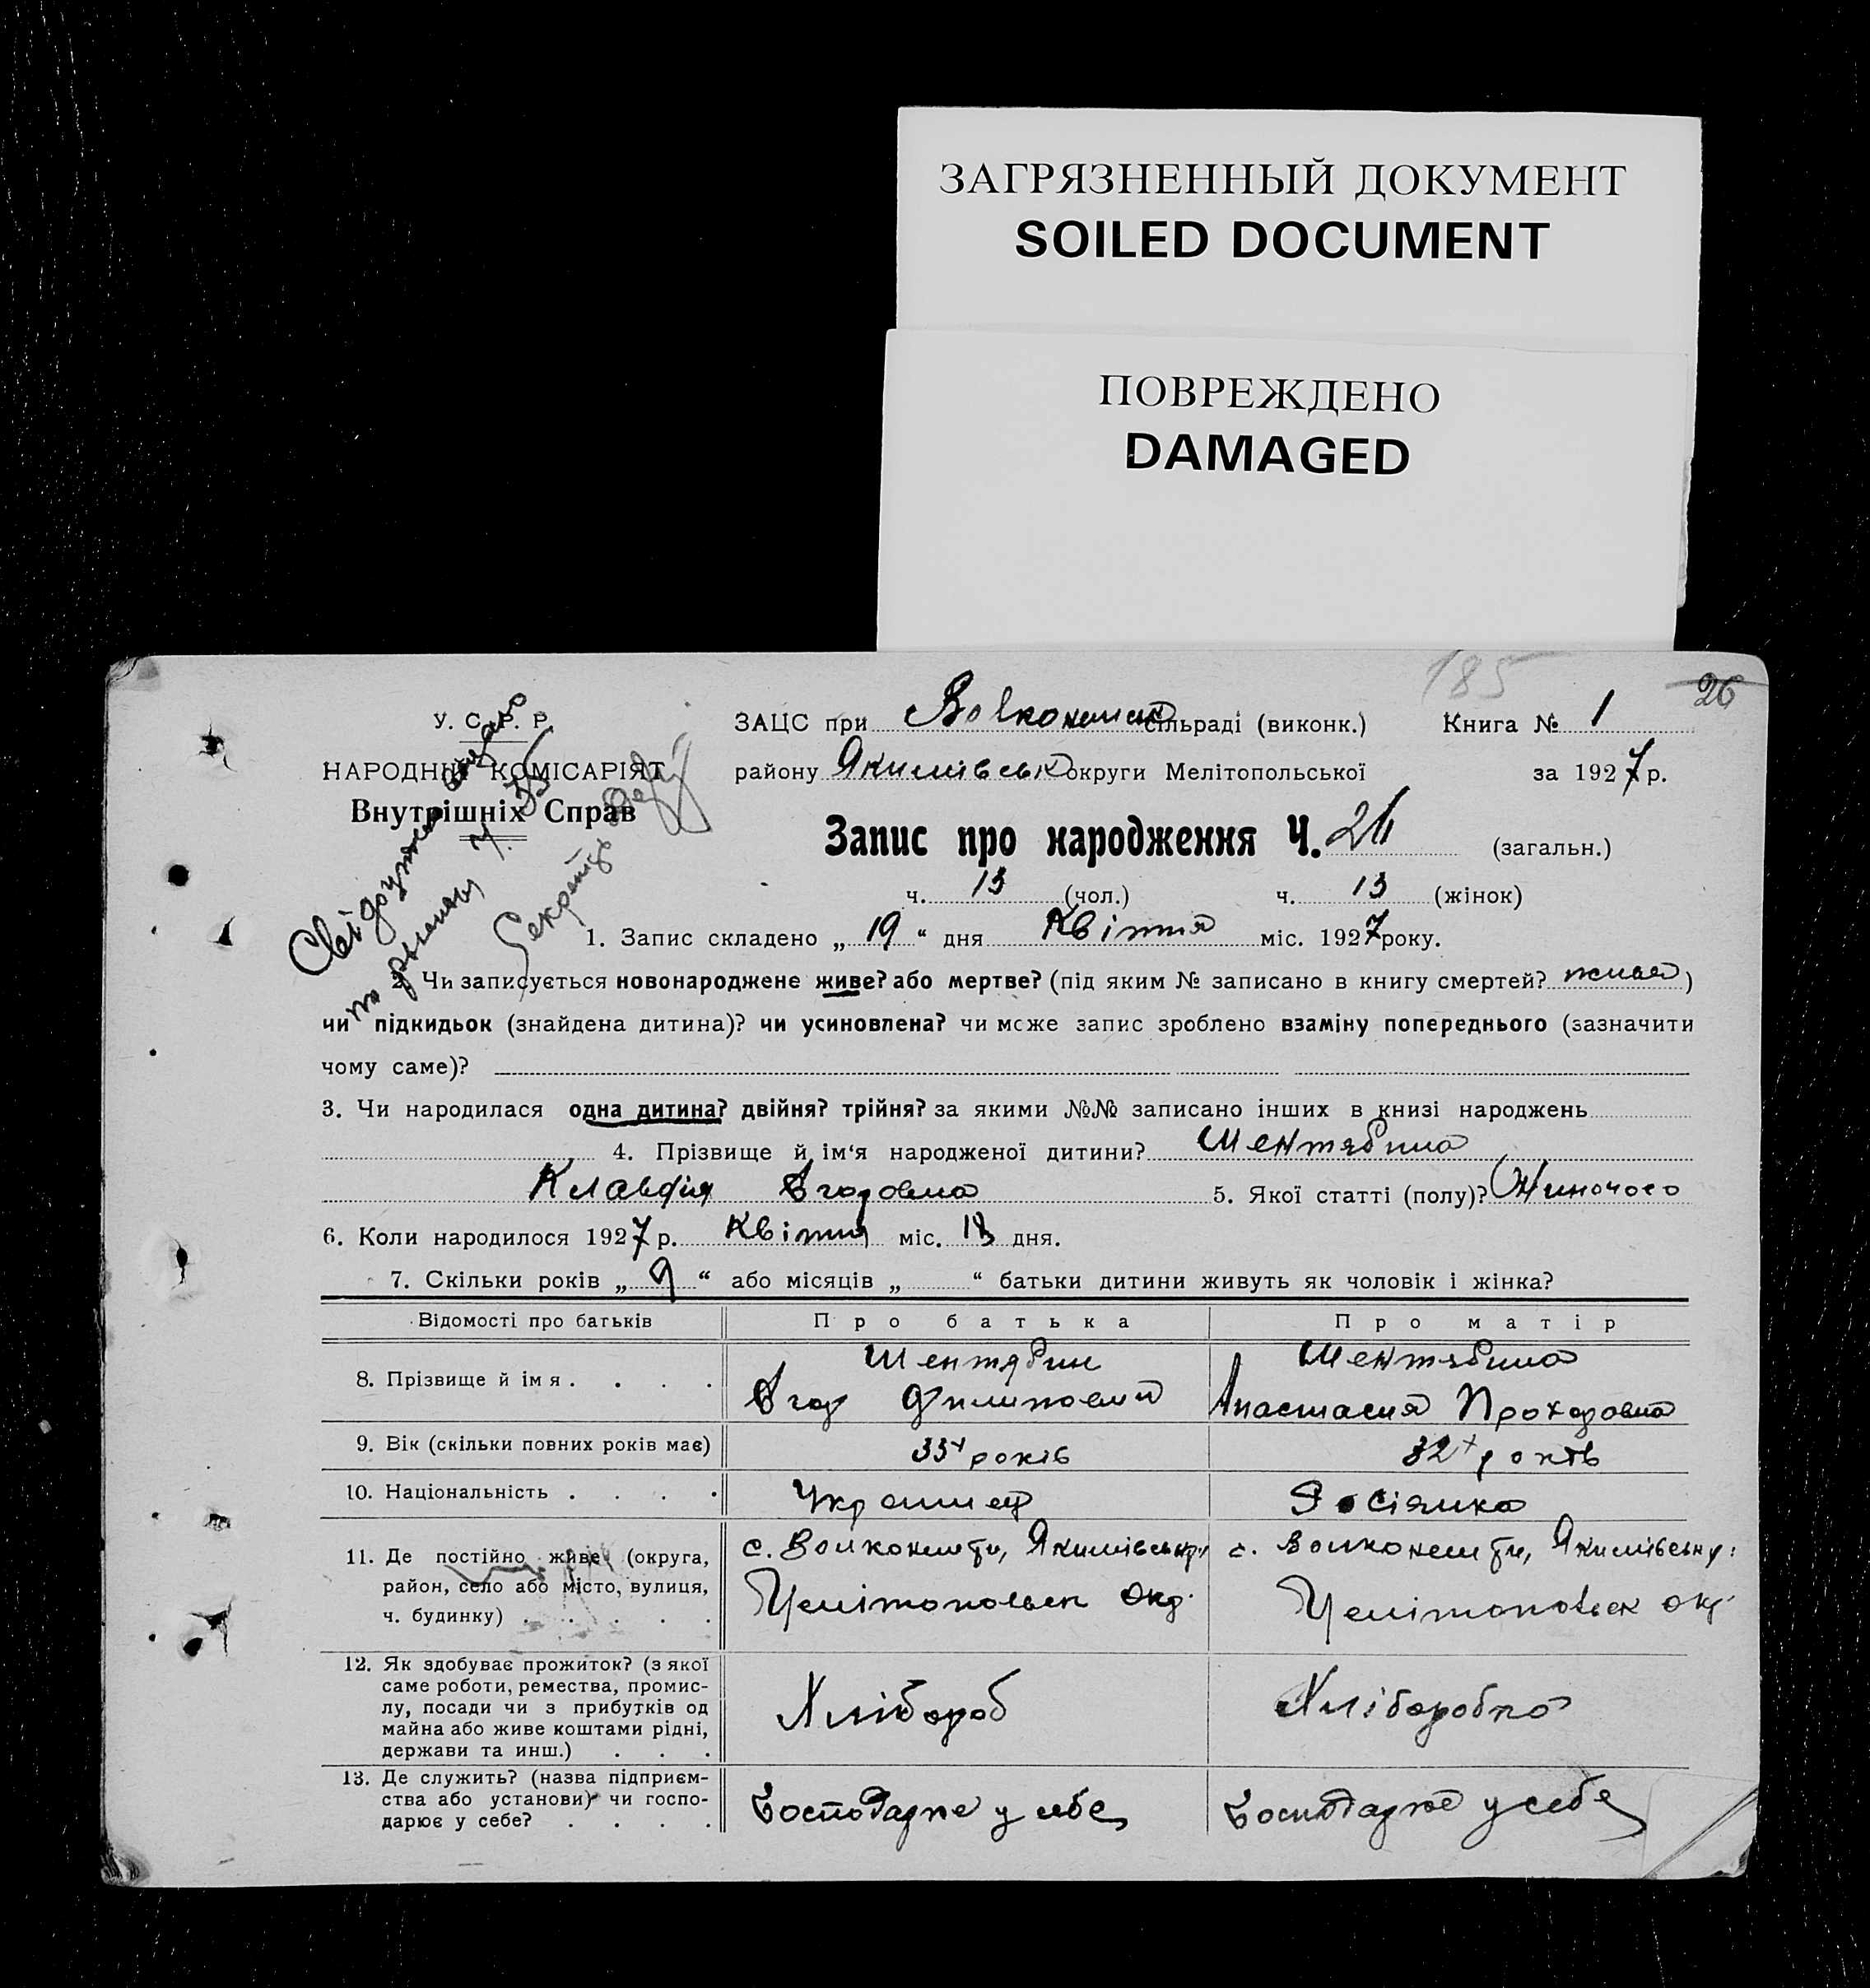 ЗАГРЯЗНЕННЫЙ ДОКУМЕНТ
SOILED DOCUMENT
ПОВРЕЖДЕНО
DAMAGED
185 26
У. С. Р. Р.
НАРОДНИЙ КОМІСАРІЯТ
Внутрішніх Справ
ЗАЦС при сільраді (виконк.) Книга № 1
району Якимівськ округи Мелітопольської за 1927 р.
Запис про народження Ч. 26 (загальн.)
ч. 13 (чол.) ч. 13 (жінок)
1. Запис складено „ 19 “ дня Квітня міс. 1927 року.
Чи записується новонароджене живе? або мертве? (під яким № записано в книгу смертей? живе)
чи підкидьок (знайдена дитина)? чи усиновлена? чи може запис зроблено взаміну попереднього (зазначити
чому саме)?
3. Чи народилася одна дитина? двійня? трійня? за якими №№ записано інших в книзі народжень
4. Прізвище й ім‘я народженої дитини? Шентябина
Клавдія Єгоровна 5. Якої статті (полу)? Жиночого
6. Коли народилося 1927 р. Квітня міс. дня.
7. Скільки років „ 9 “ або місяців „ “ батьки дитини живуть як чоловік і жінка?
Відомості про батьків Про батька Про матір
8. Прізвище й імя . . . . Шентябин Шентябина
Єгор Филипович Анастасия Прохоровна
9. Вік (скільки повних років має) 33 років 32 років
10. Національність . . . . Украинец Росіянка
11. Де постійно живе (округа,
район, село або місто, вулиця,
ч. будинку) . . . .
с. Волконешти, Якимівськ. с. Волконешти, Якимівськ.
Мелітопольск окр. Мелітопольск окр.
12. Як здобуває прожиток? (з якої
саме роботи, ремества, промис-
лу, посади чи з прибутків од
майна або живе коштами рідні,
держави та инш.) . . .
Хлібороб Хліборобка
13. Де служить? (назва підприєм-
ства або установи) чи госпо-
дарює у себе? . . . .
Господарке у себе Господарке у себе